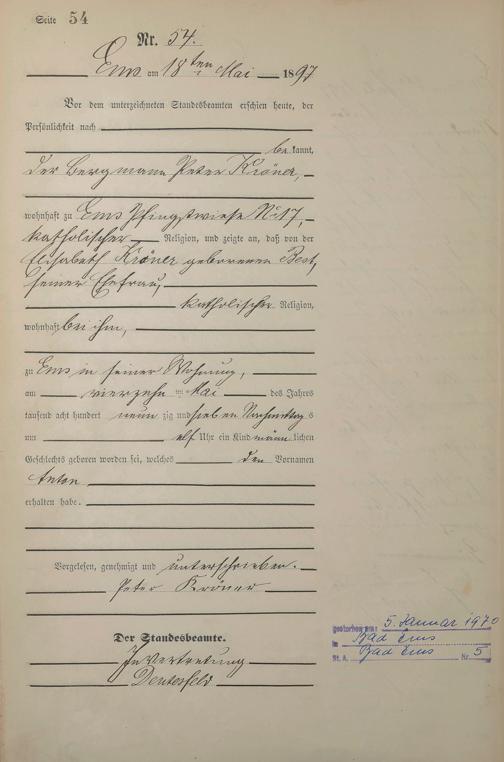 Seite 54
Nr. 54.
Ems am 18ten Mai 1897
Vor dem unterzeichneten Standesbeamten erschien heute, der
Persönlichkeit nach
be kannt,
der Bergmann Peter Kröner,
wohnhaft zu Ems Pfingstwiese No 17,
katholischer Religion, und zeigte an, daß von der
Elisabeth Kröner geborenen Best,
seiner Ehefrau,
katholischer Religion,
wohnhaft bei ihm,
zu Ems in seiner Wohnung,
am vierzehn ten Mai des Jahres
tausend acht hundert neun zig und sieben Nachmittag s
um elf Uhr ein Kind männ lichen
Geschlechts geboren worden sei, welches den Vornamen
Anton
erhalten habe.
Vorgelesen, genehmigt und unterschrieben.
Peter Kröner
Der Standesbeamte.
In Vertretung
Deutesfeld
gestorben am: 5. Januar 1970
in Bad Ems
St. A. Bad Ems Nr. 5